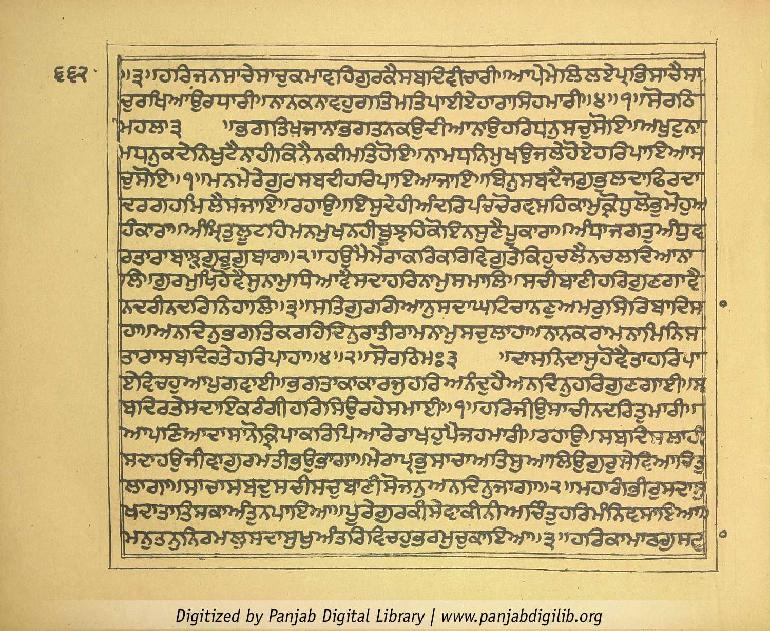 ੬੬੨
॥੩॥ਹਰਿਜਨਸਾਚੇਸਾਚੁਕਮਾਵਹਿਗੁਰਕੈਸਬਦਿਵੀਚਾਰੀ॥ਆਪੇਮੇਲਿਲਏਪ੍ਰਭਿਸਾਚੈਸਾ
ਚੁਰਖਿਆਉਰਧਾਰੀ॥ਨਾਨਕਨਾਵਹੁਗਤਿਮਤਿਪਾਈਏਹਾਰਾਸਿਹਮਾਰੀ॥੪॥੧॥ਸੋਰਠਿ
ਮਹਲਾ੩ ॥ਭਗਤਿਖਜਾਨਾਭਗਤਨਕਉਦੀਆਨਾਉਹਰਿਧਨੁਸਚੁਸੋਇ॥ਅਖੁਟੁਨਾ
ਮਧਨੁਕਦੇਨਿਖੁਟੈਨਾਹੀਕਿਨੈਨਕੀਮਤਿਹੋਇ॥ਨਾਮਧਨਿਮੁਖਉਜਲੇਹੋਏਹਰਿਪਾਇਆਸ
ਚੁਸੋਇ॥੧॥ਮਨਮੇਰੇਗੁਰਸਬਦੀਹਰਿਪਾਇਆਜਾਇ॥ਬਿਨੁਸਬਦੈਜਗੁਭੁਲਦਾਫਿਰਦਾ
ਦਰਗਹਮਿਲੈਸਜਾਇ॥ਰਹਾਉ॥ਇਸੁਦੇਹੀਅੰਦਰਿਪੰਚਚੋਰਵਸਹਿਕਾਮੁਕ੍ਰੋਧੁਲੋਭੁਮੋਹੁਅ
ਹੰਕਾਰਾ॥ਅੰਮ੍ਰਿਤੁਲੂਟਹਿਮਨਮੁਖਨਹੀਬੂਝਹਿਕੋਇਨਸੁਣੈਪੂਕਾਰਾ॥ਅੰਧਾਜਗਤੁਅੰਧੁਵ
ਰਤਾਰਾਬਾਝੁਗੁਰੂਗੁਬਾਰਾ॥੨॥ਹਉਮੈਮੇਰਾਕਰਿਕਰਿਵਿਗੁਤੇਕਿਹੁਚਲੈਨਚਲਦਿਆਨਾ
ਲਿ॥ਗੁਰਮੁਖਿਹੋਵੈਸੁਨਾਮੁਧਿਆਵੈਸਦਾਹਰਿਨਾਮੁਸਮਾਲਿ॥ਸਚੀਬਾਣੀਹਰਿਗੁਣਗਾਵੈ
ਨਦਰੀਨਦਰਿਨਿਹਾਲਿ॥੩॥ਸਤਿਗੁਰਗਿਆਨੁਸਦਾਘਟਿਚਾਨਣੁਅਮਰੁਸਿਰਿਬਾਦਿਸ
ਹਾ॥ਅਨਦਿਨੁਭਗਤਿਕਰਹਿਦਿਨੁਰਾਤੀਰਾਮਨਾਮੁਸਚੁਲਾਹਾ॥ਨਾਨਕਰਾਮਨਾਮਿਨਿਸ
ਤਾਰਾਸਬਦਿਰਤੇਹਰਿਪਾਹਾ॥੪॥੨॥ਸੋਰਠਿਮਃ੩ ॥ਦਾਸਨਿਦਾਸੁਹੋਵੈਤਾਹਰਿਪਾ
ਏਵਿਚਹੁਆਪੁਗਵਾਈ॥ਭਗਤਾਕਾਕਾਰਜੁਹਰਿਅਨੰਦੁਹੈਅਨਦਿਨੁਹਰਿਗੁਣਗਾਈ॥ਸ
ਬਦਿਰਤੇਸਦਾਇਕਰੰਗੀਹਰਿਸਿਉਰਹੇਸਮਾਈ॥੧॥ਹਰਿਜੀਉਸਾਚੀਨਦਰਿਤੁਮਾਰੀ॥
ਆਪਣਿਆਦਾਸਾਨੋਕ੍ਰਿਪਾਕਰਿਪਿਆਰੇਰਾਖਹੁਪੈਜਹਮਾਰੀ॥ਰਹਾਉ॥ਸਬਦਿਸਲਾਹੀ
ਸਦਾਹਉਜੀਵਾਗੁਰਮਤੀਭਉਭਾਗਾ॥ਮੇਰਾਪ੍ਰਭੁਸਾਚਾਅਤਿਸੁਆਲਿਉਗੁਰੁਸੇਵਿਆਚਿਤੁ
ਲਾਗਾ॥ਸਾਚਾਸਬਦੁਸਚੀਸਚੁਬਾਣੀਸੋਜਨੁਅਨਦਿਨੁਜਾਗਾ॥੨॥ਮਹਾਗੰਭੀਰੁਸਦਾਸੁ
ਖਦਾਤਾਤਿਸਕਾਅੰਤੁਨਪਾਇਆ॥ਪੂਰੇਗੁਰਕੀਸੇਵਾਕੀਨੀਅਚਿੰਤੁਹਰਿਮੰਨਿਵਸਾਇਆ॥
ਮਨੁਤਨੁਨਿਰਮਲੁਸਦਾਸੁਖੁਅੰਤਰਿਵਿਚਹੁਭਰਮੁਚੁਕਾਇਆ॥੩॥ਹਰਿਕਾਮਾਰਗੁਸਦ
Digitized by Panjab Digital Library | www.panjabdigilib.org